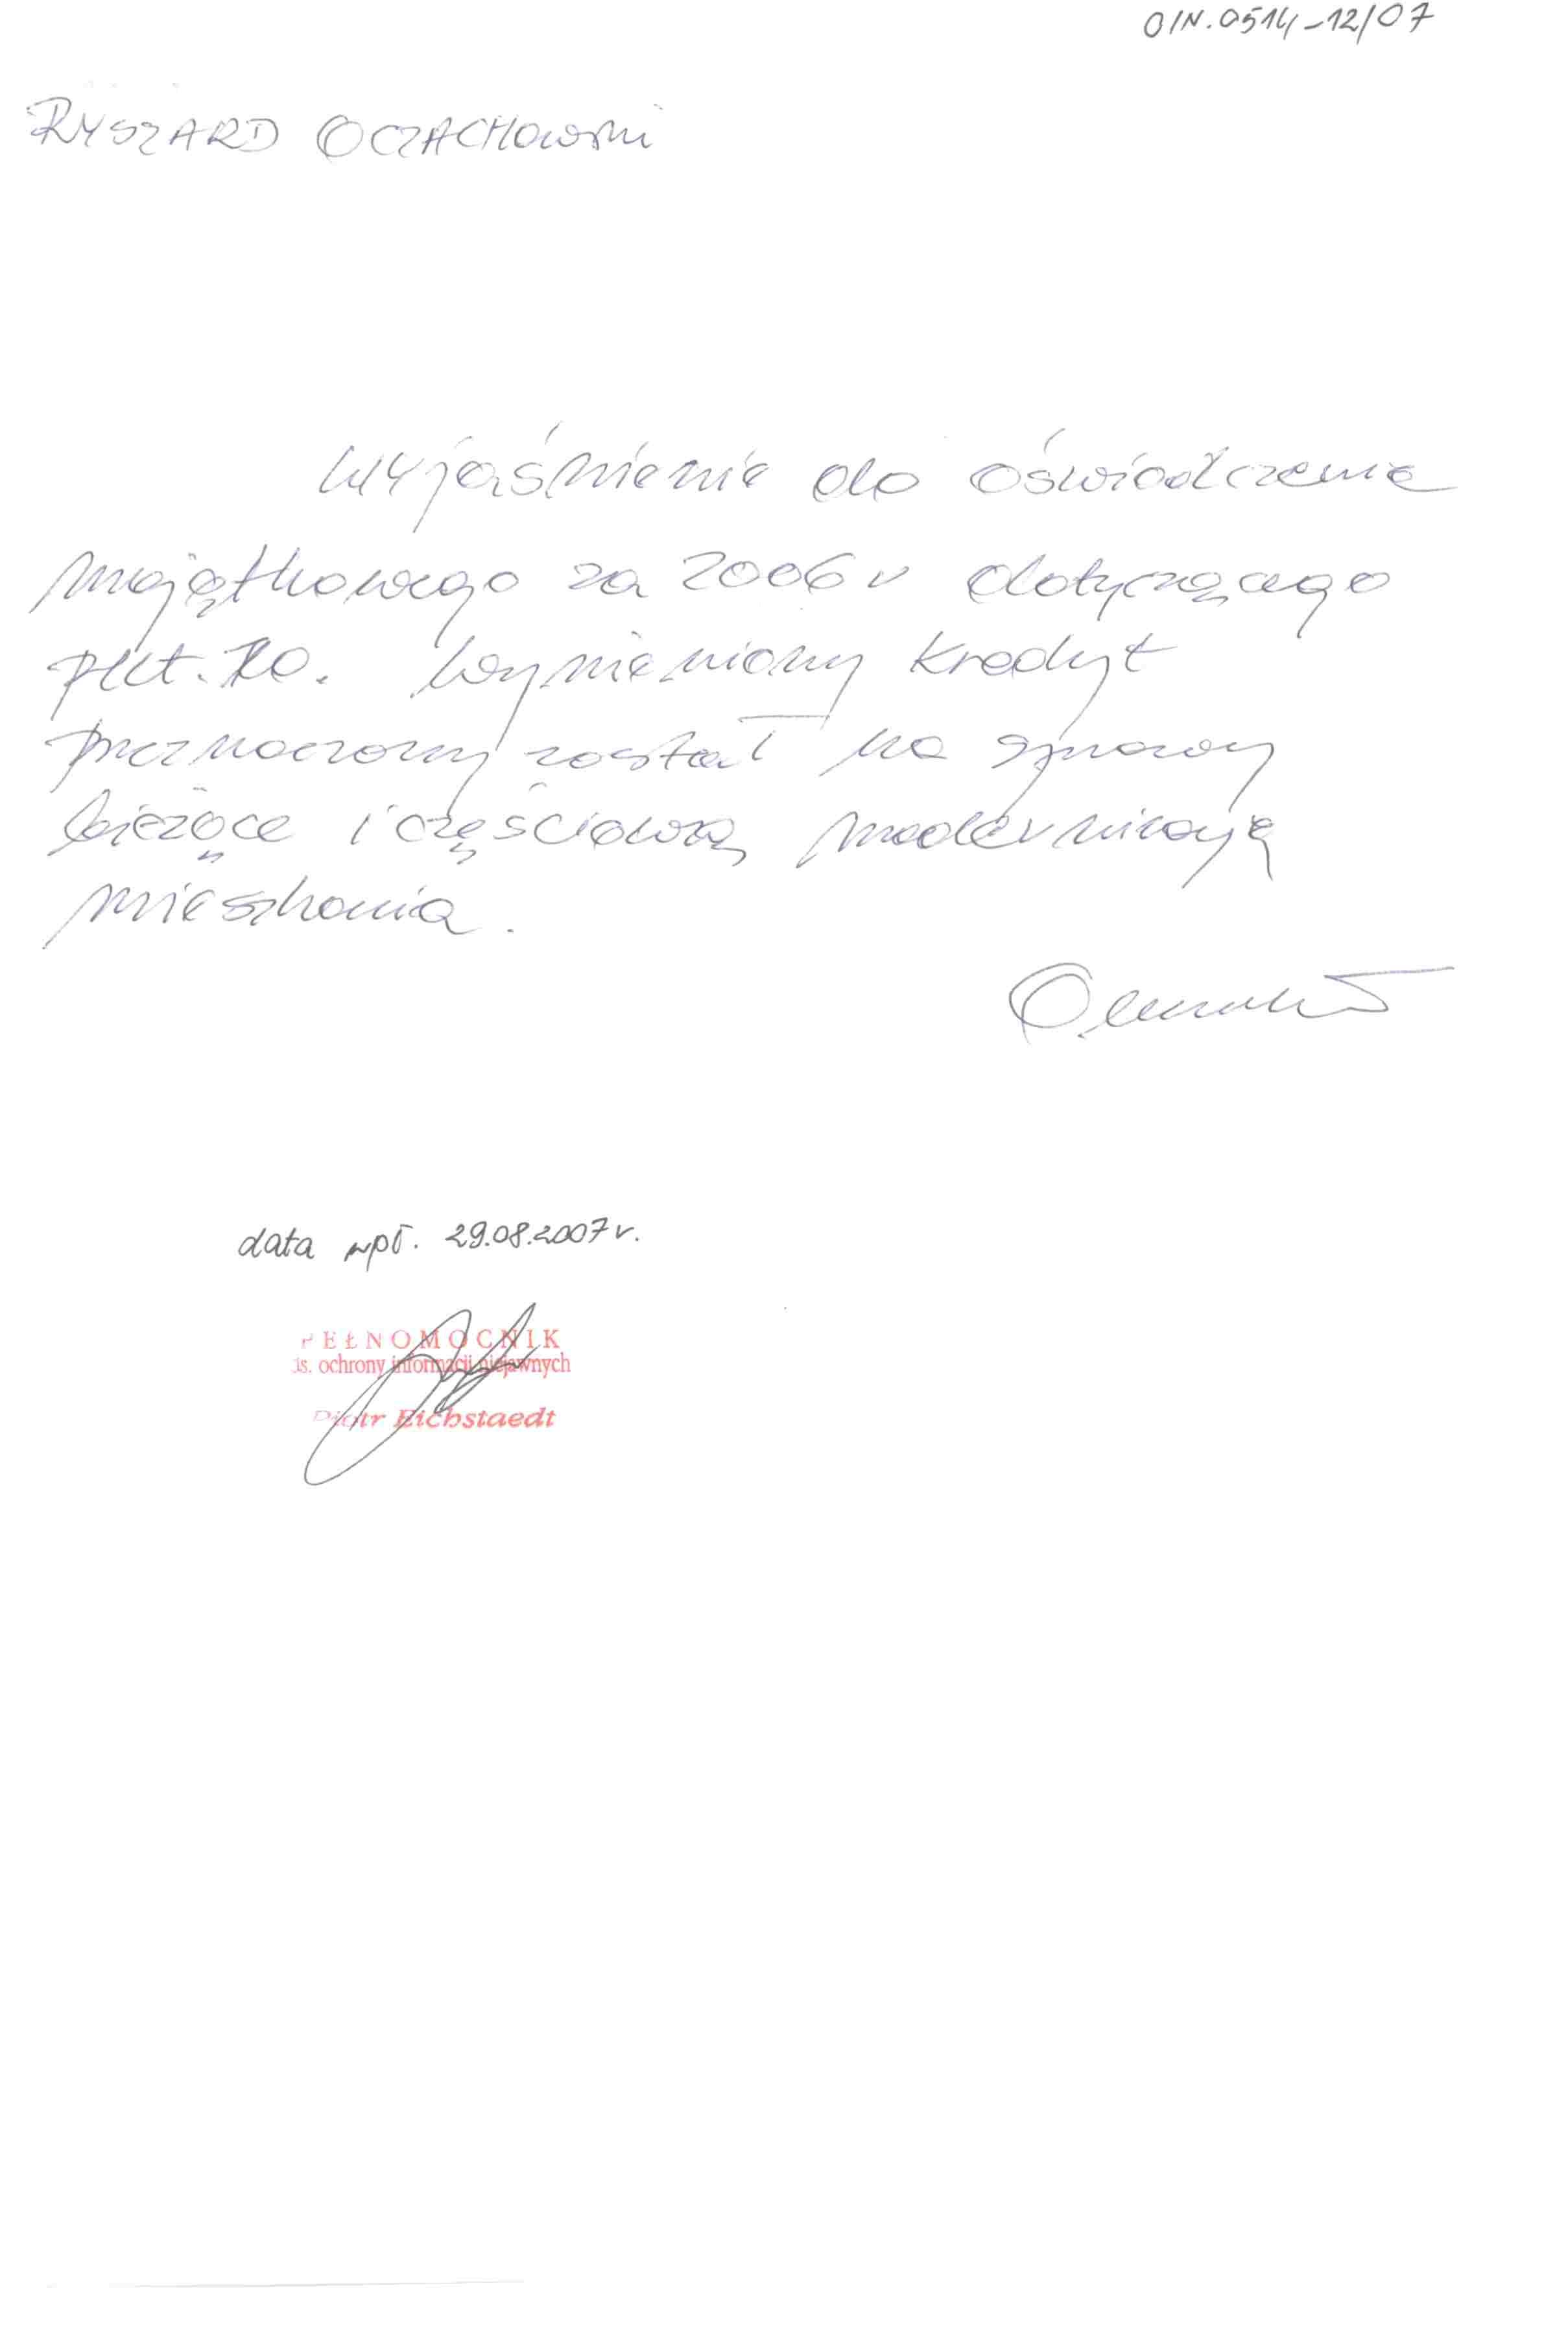 OIN.0514-12/07
RYSZARD OCZACHOWSKI
Wyjaśnienie do oświadczenia
majątkowego za 2006 r dotyczącego
pkt. 10. Wymieniony kredyt
przeznaczony został na sprawy
bieżące i częściową modernizację
mieszkania.
data wpł. 29.08.2007 r.
PEŁNOMOCNIK
ds. ochrony informacji niejawnych
Piotr Eichstaedt